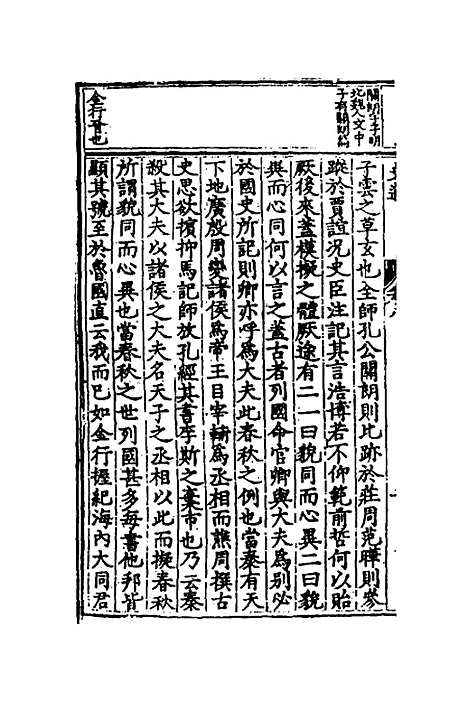 關朗字子明
北魏人文中
子有關朗篇
金行晉也
子雲之草玄也全師孔公關朗則比跡於莊周范曄則參
蹤於賈誼况史臣注記其言浩博若不仰範前哲何以貽
厥後來蓋模擬之體厥途有二一曰貌同而心異二曰貌
異而心同何以言之蓋古者列國命官卿與大夫爲別必
於國史所記則卿亦呼爲大夫此春秋之例也當秦有天
下地廣殷周變諸侯爲帝王目宰輔爲丞相而譙周撰古
史思欲擯抑馬記師放孔經其書李斯之棄市也乃云秦
殺其大夫以諸侯之大夫名天子之丞相以此而擬春秋
所謂貌同而心異也當春秋之世列國甚多每書他邦皆
顯其號至於魯國直云我而已如金行握紀海內大同君